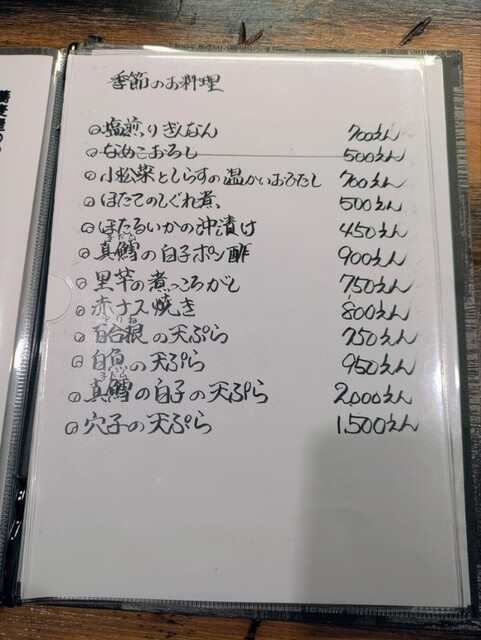 季節のお料理
塩煎りぎんなん 700えん
なめこおろし 500えん
小松菜としらすの温かいおひたし 700えん
ほたてのしぐれ煮 500えん
ほたるいかの沖漬け 450えん
まだら
真鱈の白子ポン酢 900えん
里芋の煮っころがし 750えん
赤ナス焼き 800えん
ゆりね
百合根の天ぷら 750えん
白魚の天ぷら 950えん
まだら
真鱈の白子の天ぷら 2,000えん
穴子の天ぷら 1,500えん